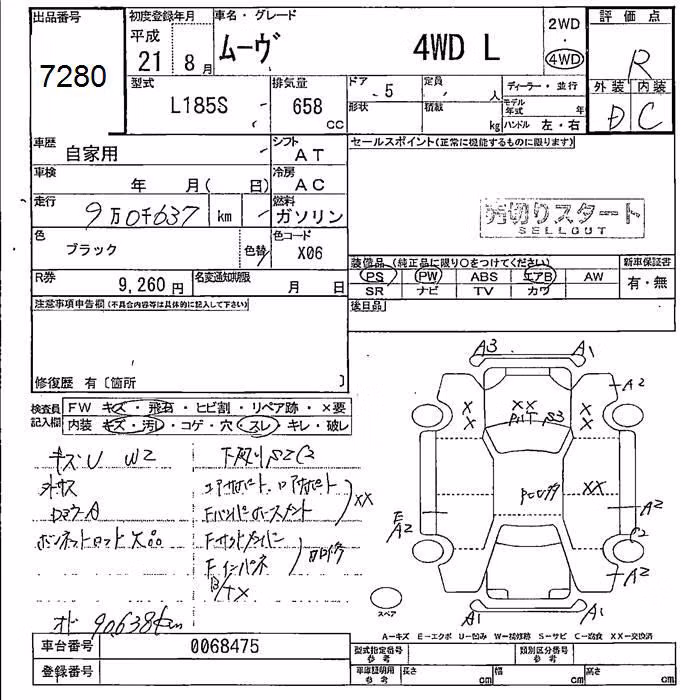 出品番号
7280
初度登録年月
平成
21 8月
車名・グレード
ムーヴ 4WD L
2WD
4WD
評価点
R
外装 内装
D C
型式
L185S
排気量
658
CC
ドア
5
定員
人
形状
積載
kg
ディーラー・並行
モデル年式 年
ハンドル 左・右
車歴
自家用
シフト
AT
セールスポイント(正常に機能するものに限ります)
車検
年 月( 日)
冷房
AC
走行
9万0千637 km
燃料
ガソリン
売切りスタート
SELLOUT
色
ブラック
色替
色コード
X06
装備品(純正品に限り○をつけてください)
新車保証書
PS PW ABS エアB AW
SR ナビ TV カワ
有・無
R券
9,260円
名変通知期限
月 日
後日品
注意事項申告欄(不具合内容等は具体的に記入して下さい)
修復歴 有〔箇所 〕
検査員記入欄
FW キズ・飛石・ヒビ割・リペア跡・×要
内装 キズ・汚れ・コゲ・穴・スレ・キレ・破レ
キズ・U W2
下廻りS2C2
ボンネットロット欠品
XX
オド 90638km
A3 A1
A2
XX
XX
XX
A2
E
A2
C2
A2
A1 A1
スペア
A―キズ E―エクボ U―凹み W―補修跡 S―サビ C―腐食 XX―交換済
車台番号
0068475
登録番号
型式指定番号
参考
類別区分番号
参考
車庫証明用
参考
長さ cm
幅 cm
高さ cm